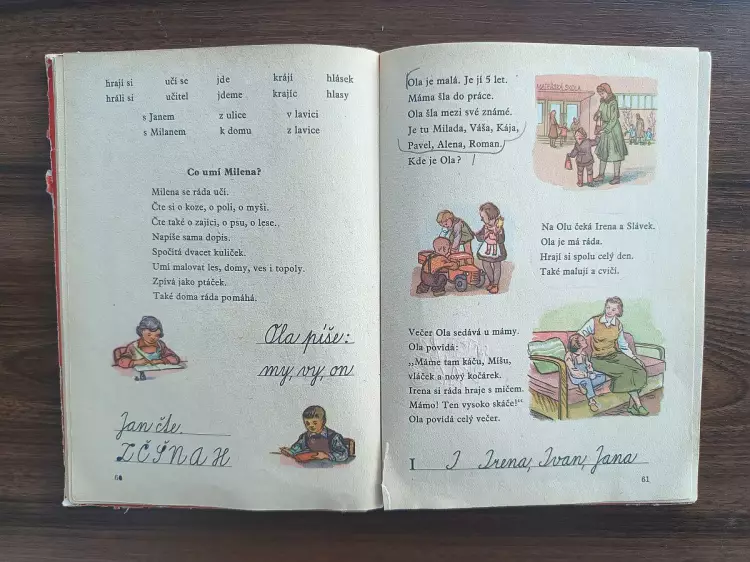 hrají si učí se jde krájí hlásek
hráli si učitel jdeme krajíc hlasy
s Janem z ulice v lavici
s Milanem k domu z lavice
Co umí Milena?
Milena se ráda učí.
Čte si o koze, o poli, o myši.
Čte také o zajíci, o psu, o lese.
Napíše sama dopis.
Spočítá dvacet kuliček.
Umí malovat les, domy, ves i topoly.
Zpívá jako ptáček.
Také doma ráda pomáhá.
Ola píše:
my, vy, on
Jan čte.
Z Č Š Ň A H
60
Ola je malá. Je jí 5 let.
Máma šla do práce.
Ola šla mezi své známé.
Je tu Milada, Váša, Kája,
Pavel, Alena, Roman.
Kde je Ola?
MATEŘSKÁ ŠKOLA
Na Olu čeká Irena a Slávek.
Ola je má ráda.
Hrají si spolu celý den.
Také malují a cvičí.
Večer Ola sedává u mámy.
Ola povídá:
„Máme tam káču, Míšu,
vláček a nový kočárek.
Irena si ráda hraje s míčem.
Mámo! Ten vysoko skáče!“
Ola povídá celý večer.
I I Irena, Ivan, Jana
61